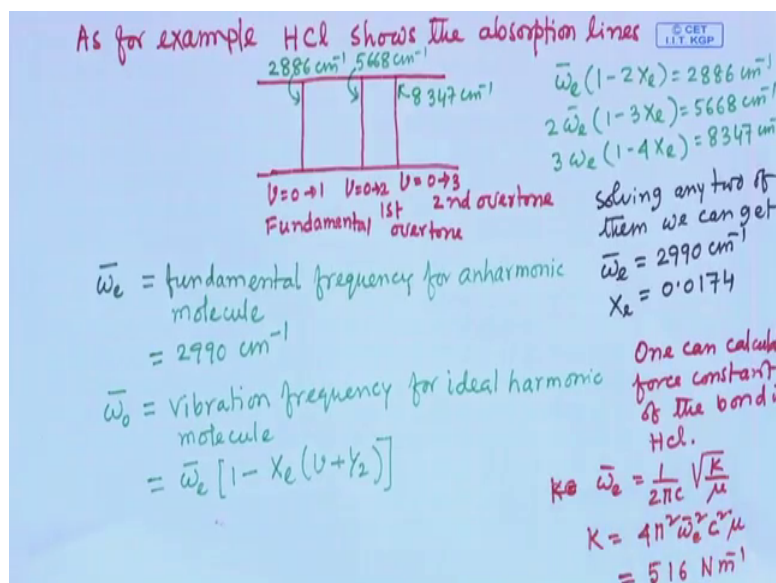 As for example HCl shows the absorption lines
© CET
I.I.T. KGP
2886 cm⁻¹ 5668 cm⁻¹
8347 cm⁻¹
υ=0→1 υ=0→2 υ=0→3
Fundamental 1st overtone 2nd overtone
ω̄e(1-2xe) = 2886 cm⁻¹
2ω̄e(1-3xe) = 5668 cm⁻¹
3ωe(1-4xe) = 8347 cm
solving any two of
them we can get
ω̄e = 2990 cm⁻¹
xe = 0.0174
ω̄e = fundamental frequency for anharmonic
molecule
= 2990 cm⁻¹
ω̄o = vibration frequency for ideal harmonic
molecule
= ω̄e [1 - xe(υ+1/2)]
One can calcula
force constant
of the bond i
HCl.
ω̄e = 1/2πc √K/μ
K = 4π²ω̄e²c²μ
= 516 Nm⁻¹